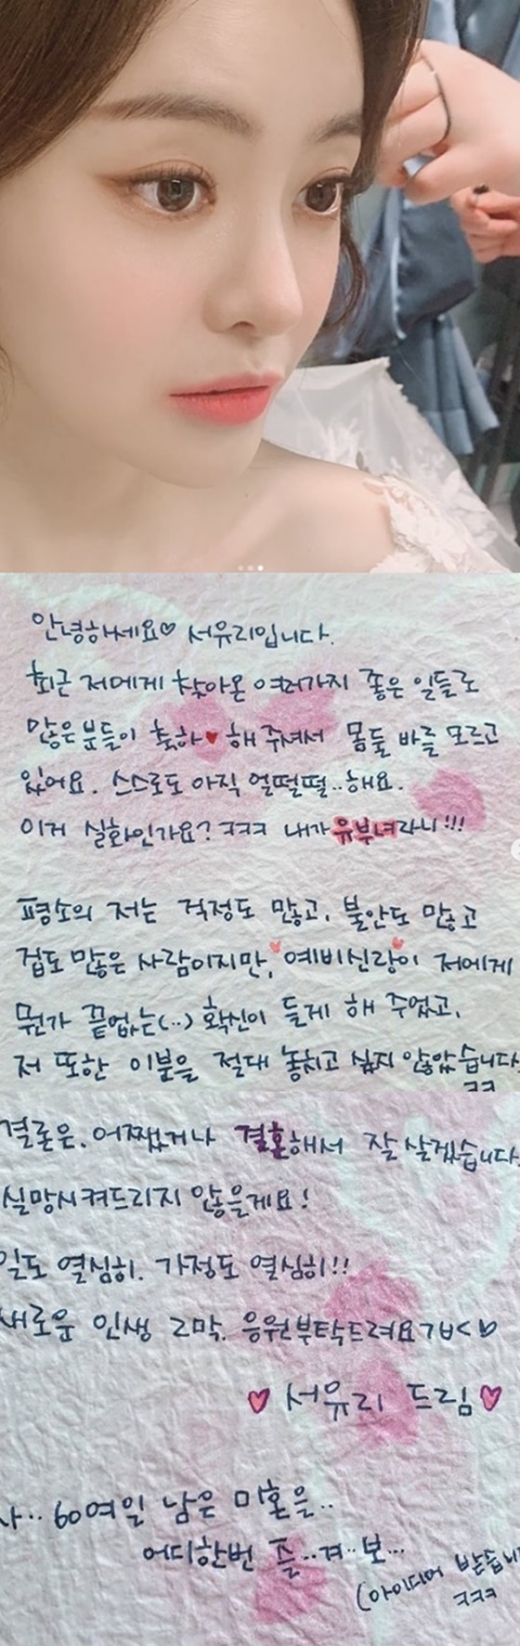 안녕하세요♡ 서유리입니다.
최근 저에게 찾아온 여러가지 좋은 일들로
많은 분들이 축하♥해 주셔서 몸둘 바를 모르고
있어요. 스스로도 아직 얼떨떨..해요.
이거 실화인가요? ㅋㅋㅋ 내가 유부녀라니!!!
평소의 저는 걱정도 많고, 불안도 많고
겁도 많은 사람이지만, 예비신랑이 저에게
뭔가 끝없는(..) 확신이 들게 해 주었고,
저 또한 이분을 절대 놓치고 싶지 않았습니다
ㅋㅋ
결론은. 어쨌거나 결혼해서 잘 살겠습니다.
실망시켜드리지 않을게요!
일도 열심히. 가정도 열심히!!
새로운 인생 2막. 응원부탁드려요
♥ 서유리 드림 ♥
60여일 남은 미혼을..
어디한번 즐..겨..보...
(아이디어 받습니
ㅋㅋㅋ